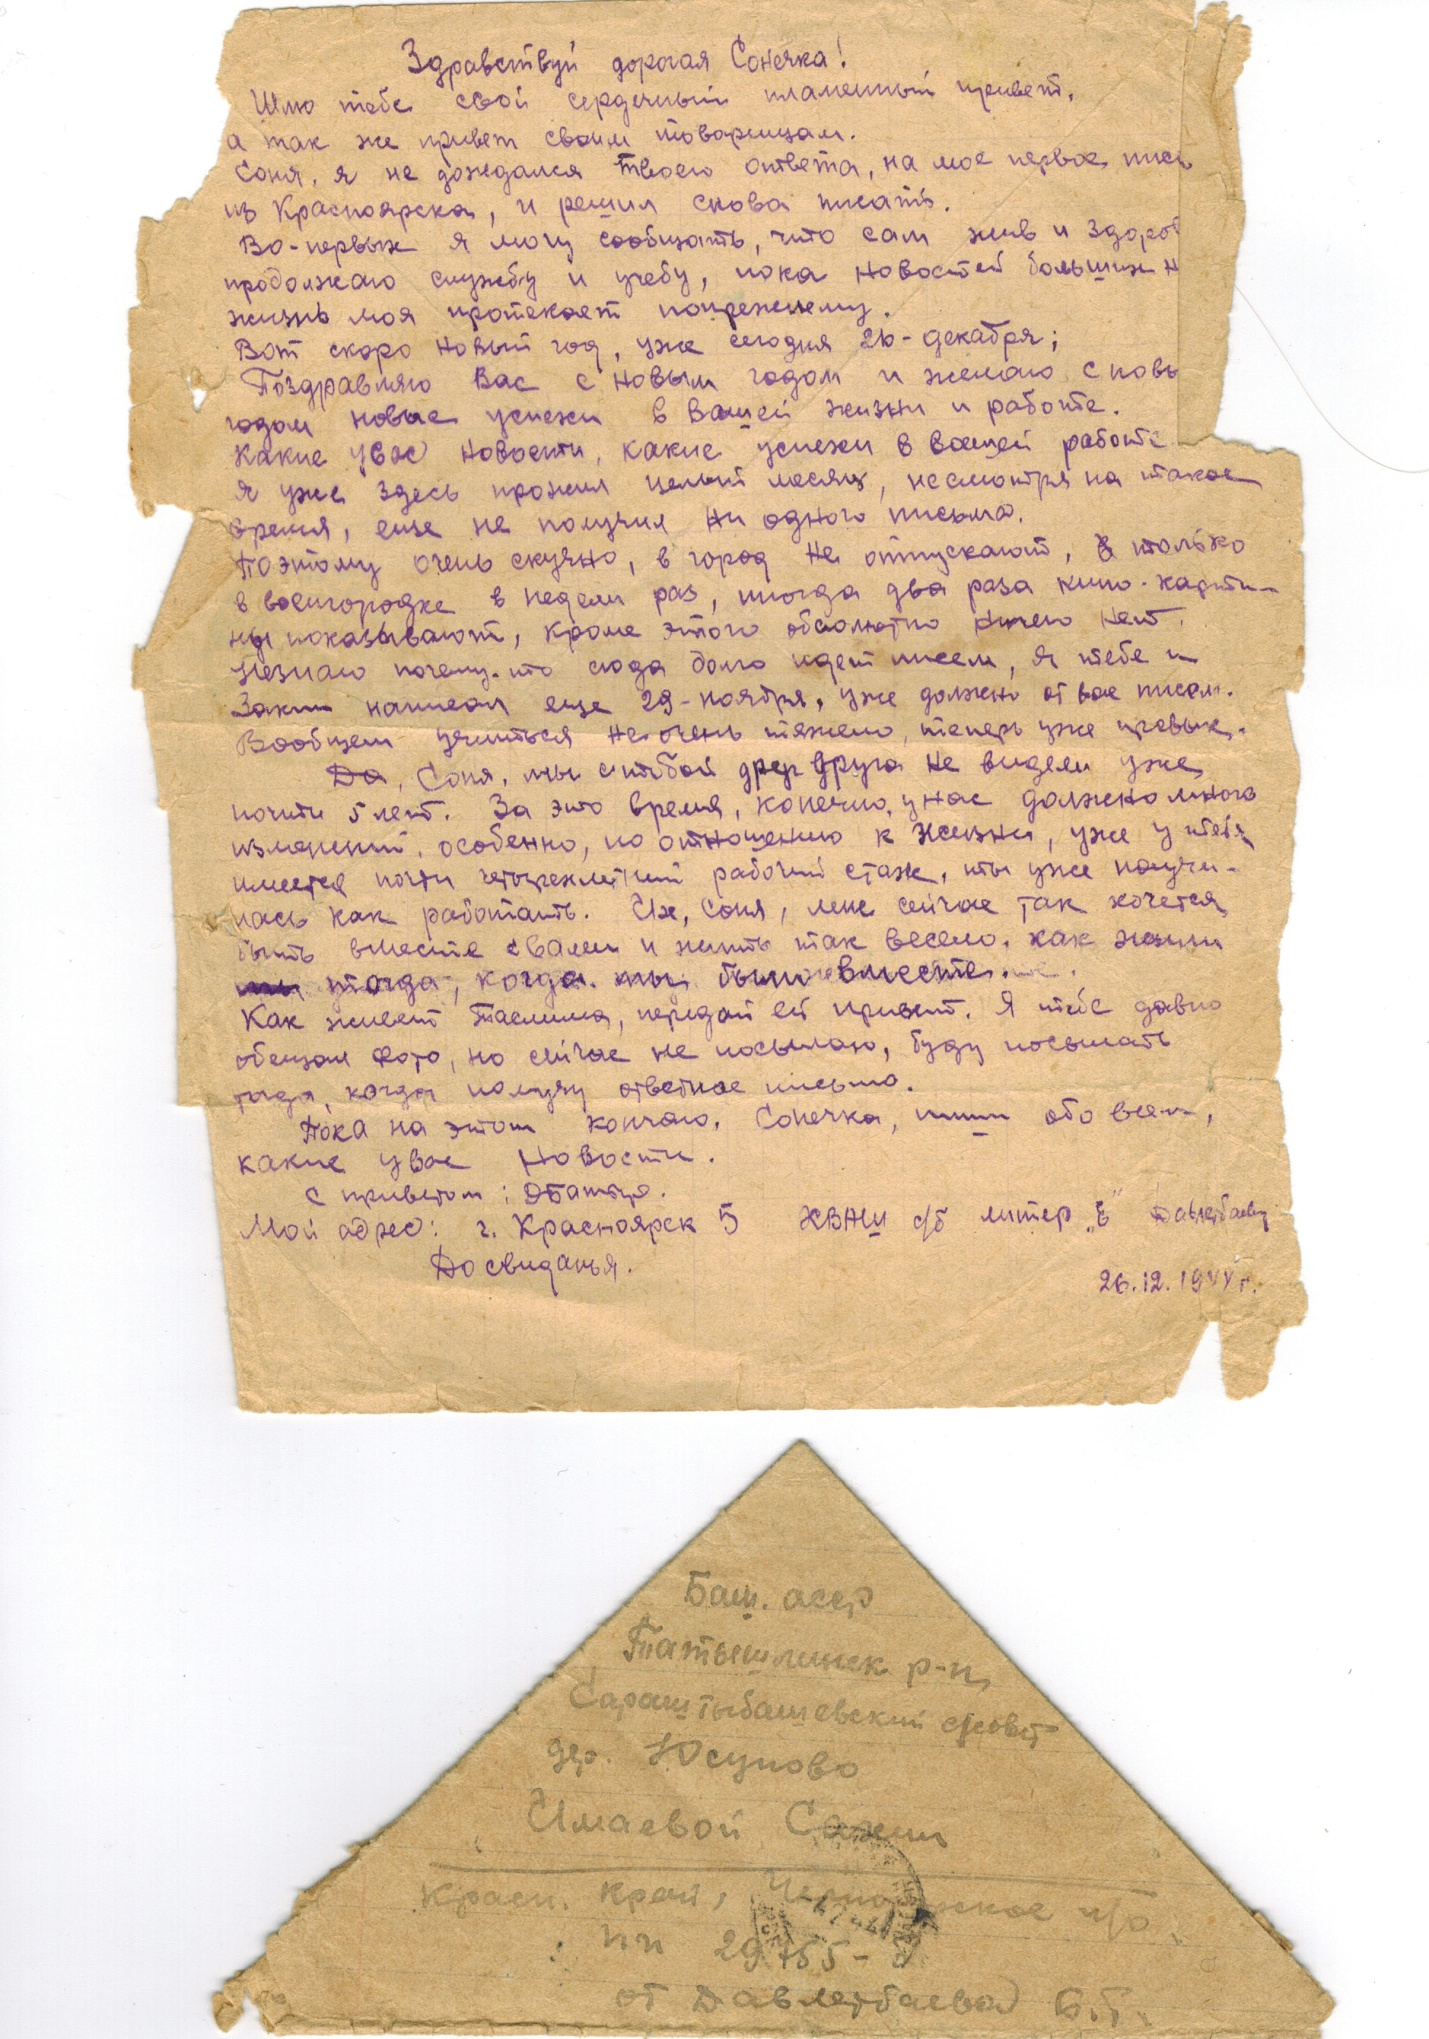 Здравствуй дорогая Сонечка!
Шлю тебе свой сердечный пламенный привет,
а так же привет своим товарищам.
Соня, я не дождался твоего ответа, на мое первое пись
из Красноярска, и решил снова писать.
Во-первых я могу сообщать, что сам жив и здоров
продолжаю службу и учебу, пока новостей больших н
жизнь моя протекает попрежнему.
Вот скоро новый год, уже сегодня 26-декабря;
Поздравляю Вас с новым годом и желаю с новы
годом новые успехи в вашей жизни и работе.
Какие у вас новости, какие успехи в вашей работе
Я уже здесь прожил целый месяц, несмотря на такое
время, еще не получил ни одного письма.
Поэтому очень скучно, в город не отпускают, только
в военгородке в недели раз, иногда два раза кино-карти-
ны показывают, кроме этого абсолютно ничего нет.
Незнаю почему-то сюда долго идет писем, я тебе и
Закии написал еще 29-ноября, уже должно от вас писем.
Вообщем учиться не очень тяжело, теперь уже превык.
Да, Соня, мы с тобой друг друга не видели уже
почти 5 лет. За это время, конечно, у нас должно много
изменений, особенно, по отношению к жизни, уже у тебя
имеется почти четырехлетний рабочий стаж, ты уже научи-
лась как работать. Их, Соня, мне сейчас так хочется
быть вместе с вами и жить так весело, как жили
мы тогда, когда мы были вместе.
Как живет Таслима, передай ей привет. Я тебе давно
обещал фото, но сейчас не посылаю, буду посылать
тогда, когда получу ответное письмо.
Пока на этом кончаю. Сонечка, пиши обо всем,
какие у вас новости.
С приветом:
Мой адрес: г. Красноярск 5 ХВАШ с/б литер „Б" Давлетбаеву
До свиданья.
26.12.1944 г.
Баш. асср
Татышлинск р-н,
Сараштыбашевский с/совет
дер. Юсупово
Имаевой Сании
Красн. край, п/о
пп 29755-
от Давлетбаева Б.Г.